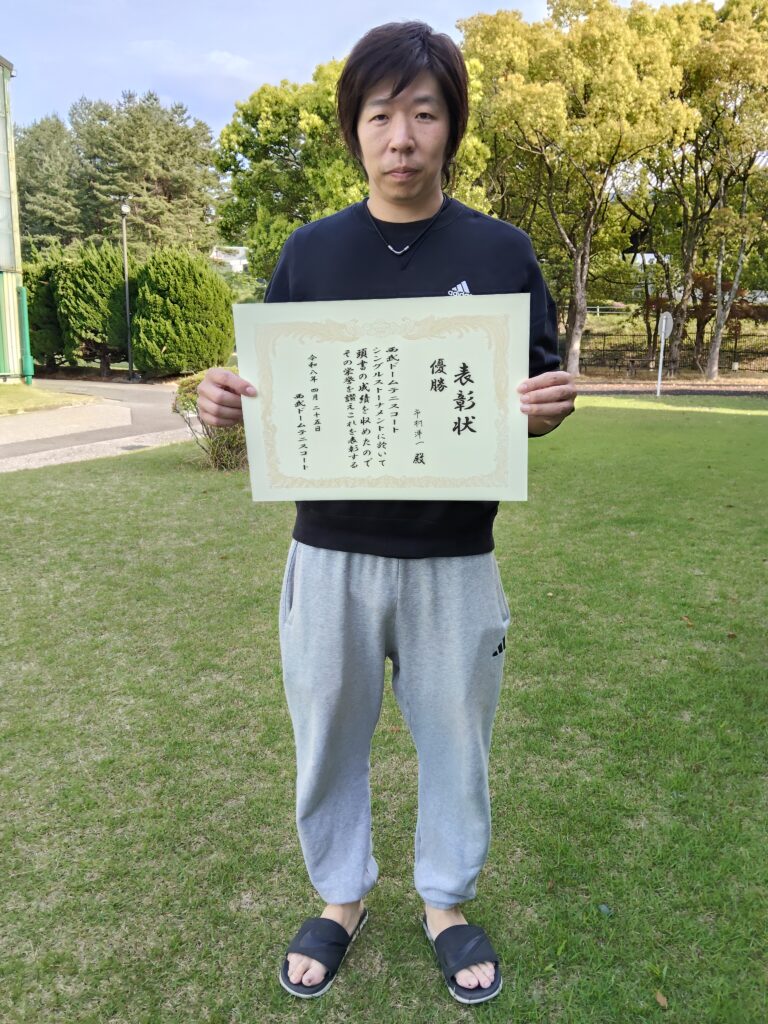 表彰状
優勝
平釼洋一 殿
西武ドームテニスコート
シングルストーナメントに於いて
頭書の成績を収めたので
その栄誉を讃えこれを表彰する
令和八年 四月 二十五日
西武ドームテニスコート
adidas